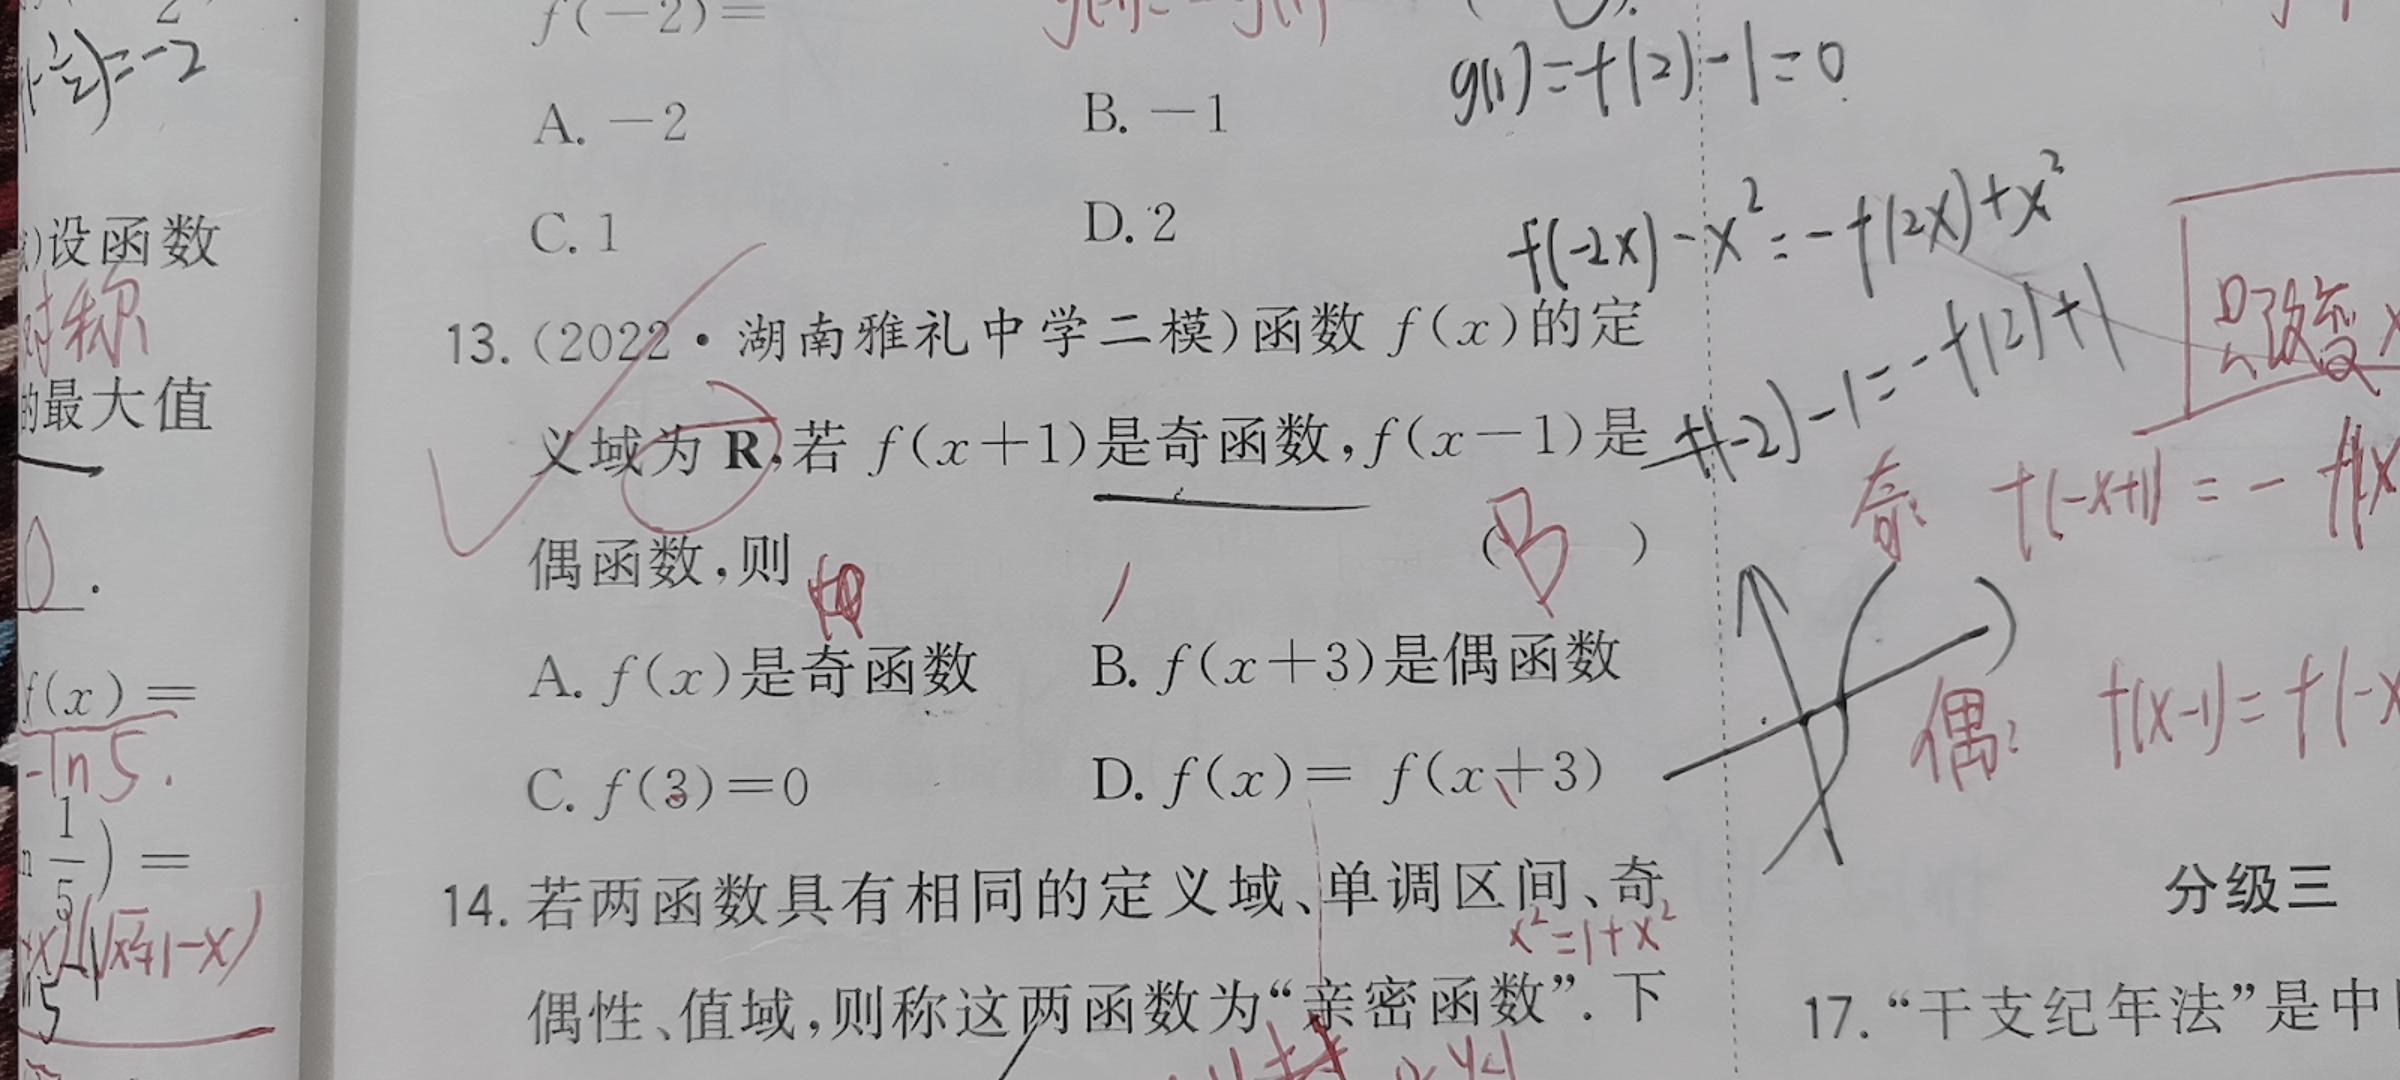 f(-2)=
g(1)=f(2)-1=0
=-2
A. -2 B. -1
C. 1 D. 2
f(-2x)-x²=-f(2x)+x²
f(-2)-1=-f(2)+1
设函数
对称
的最大值
0.
f(x)=
-ln5.
1
5
)=
(√x²+1-x)
5
13. (2022·湖南雅礼中学二模)函数 f(x)的定
义域为 R,若 f(x+1)是奇函数,f(x-1)是
偶函数,则 ( B )
A. f(x)是奇函数 B. f(x+3)是偶函数
C. f(3)=0 D. f(x)= f(x+3)
14. 若两函数具有相同的定义域、单调区间、奇
x²=1+x²
偶性、值域,则称这两函数为“亲密函数”. 下
只改变x
奇: f(-x+1)=-f(x
偶: f(x-1)=f(-x
分级三
17. “干支纪年法”是中